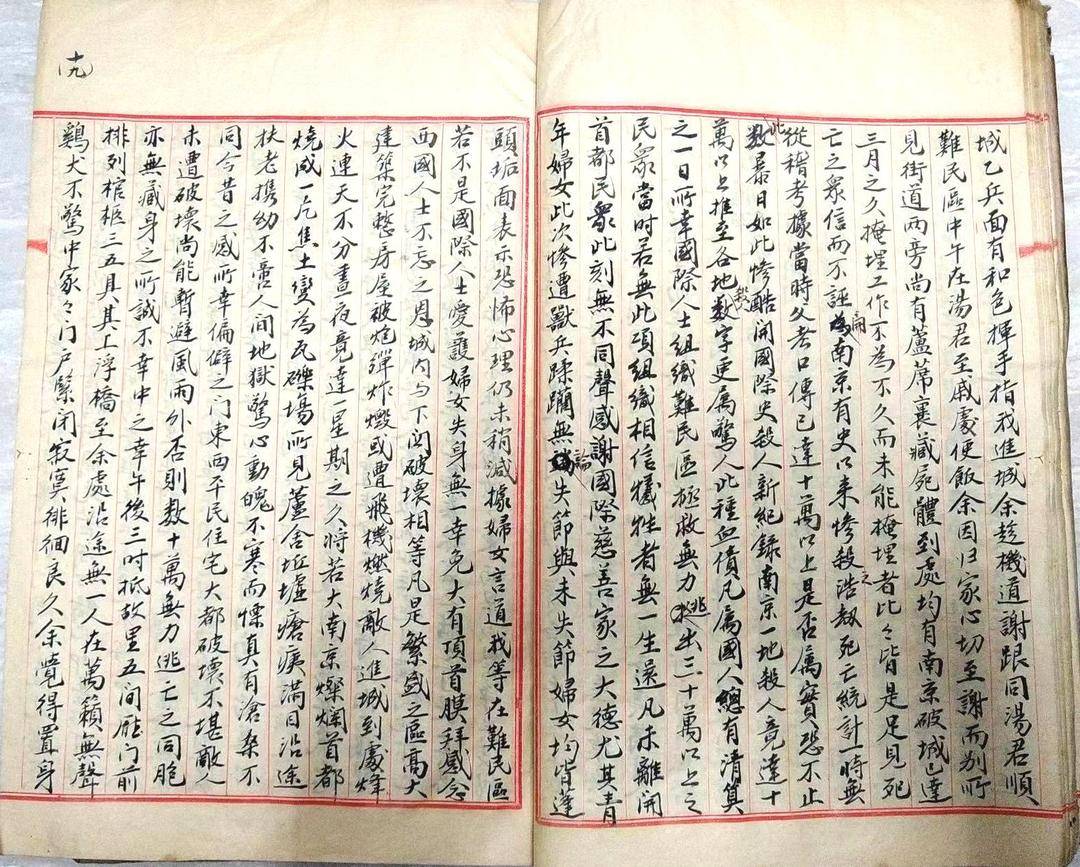 城乙兵面有和色揮手指我進城余趁機道謝跟同湯君順
難民區中午在湯君至戚處便飯余因归家心切至謝而别所
見街道兩旁尚有蘆蓆裹藏屍體到處均有南京破城已達
三月之久掩埋工作不為不久而未能掩埋者比々皆是足見死
亡之衆信而不誣南京有史以来慘殺浩劫死亡統計一時無
從稽考據當時父老口傳已達十萬以上是否属實恐不止
此数暴日如此慘酷開國際史殺人新纪録南京一地殺人竟達十
萬以上推至各地数字更属驚人此種血債凡属國人總有清算
之一日所幸國際人士組織難民區極救無力逃出三十萬以上之
民衆當时若無此項組織相信犧牲者無一生還凡未離開
首都民衆此刻無不同聲感謝國際慈善家之大德尤其青
年婦女此次慘遭獸兵蹂躏無論失節與未失節婦女均皆蓬
頭垢面表示恐怖心理仍未稍減據婦女言道我等在難民區
若不是國際人士愛護婦女失身無一幸免大有頂首膜拜感念
西國人士不忘之恩城内与下関破壞相等凡是繁盛之區高大
建築完整房屋被炮彈炸燬或遭飛機燃燒敵人進城到處烽
火連天不分晝夜竟達一星期之久将若大南京燦爛首都
燒成一片焦土變為瓦礫塲所見蘆舍坵墟瘡痍满目沿途
扶老携幼不啻人间地獄驚心動魄不寒而慄真有滄桑不
同今昔之感所幸偏僻之门東西平民住宅大都破壞不堪敵人
未遭破壞尚能暫避風雨外否則数十萬無力逃亡之同胞
亦無藏身之所誠不幸中之幸午後三时抵故里五间廳门前
排列棺柩三五具其上浮橋至余處沿途無一人在萬籟無聲
鷄犬不驚中家々门户緊闭寂寞徘徊良久余覺得置身
十九